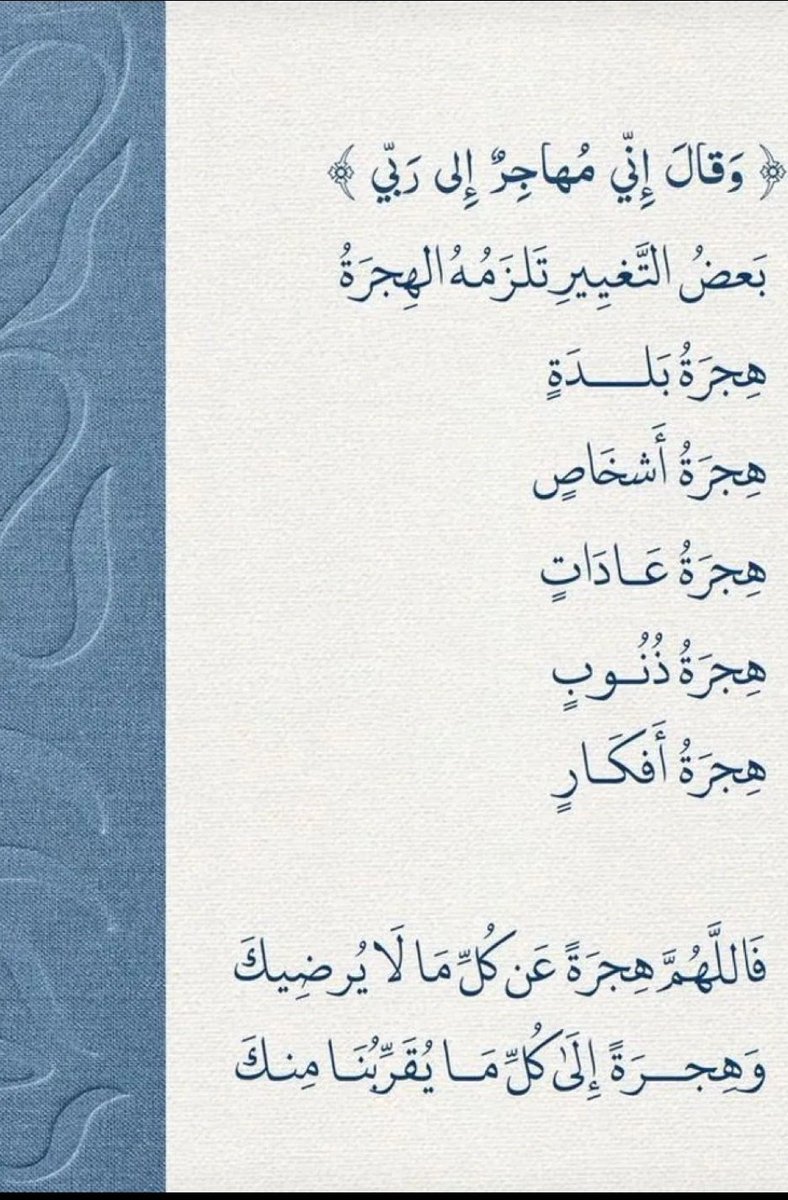 ﴿ وَقالَ إِنّي مُهاجِرٌ إِلى رَبّي ﴾
بَعضُ التَّغيِيرِ تَلزَمُهُ الهِجرَةُ
هِجرَةُ بَلـــدَةٍ
هِجرَةُ أَشخَاصٍ
هِجرَةُ عَـادَاتٍ
هِجرَةُ ذُنُـوبٍ
هِجرَةُ أَفكَـارٍ
فَاللَّهُمَّ هِجرَةً عَن كُلِّ مَا لَا يُرضِيكَ
وَهِجــرَةً إِلَىٰ كُلِّ مَـا يُقَرِّبُنَـا مِنـكَ